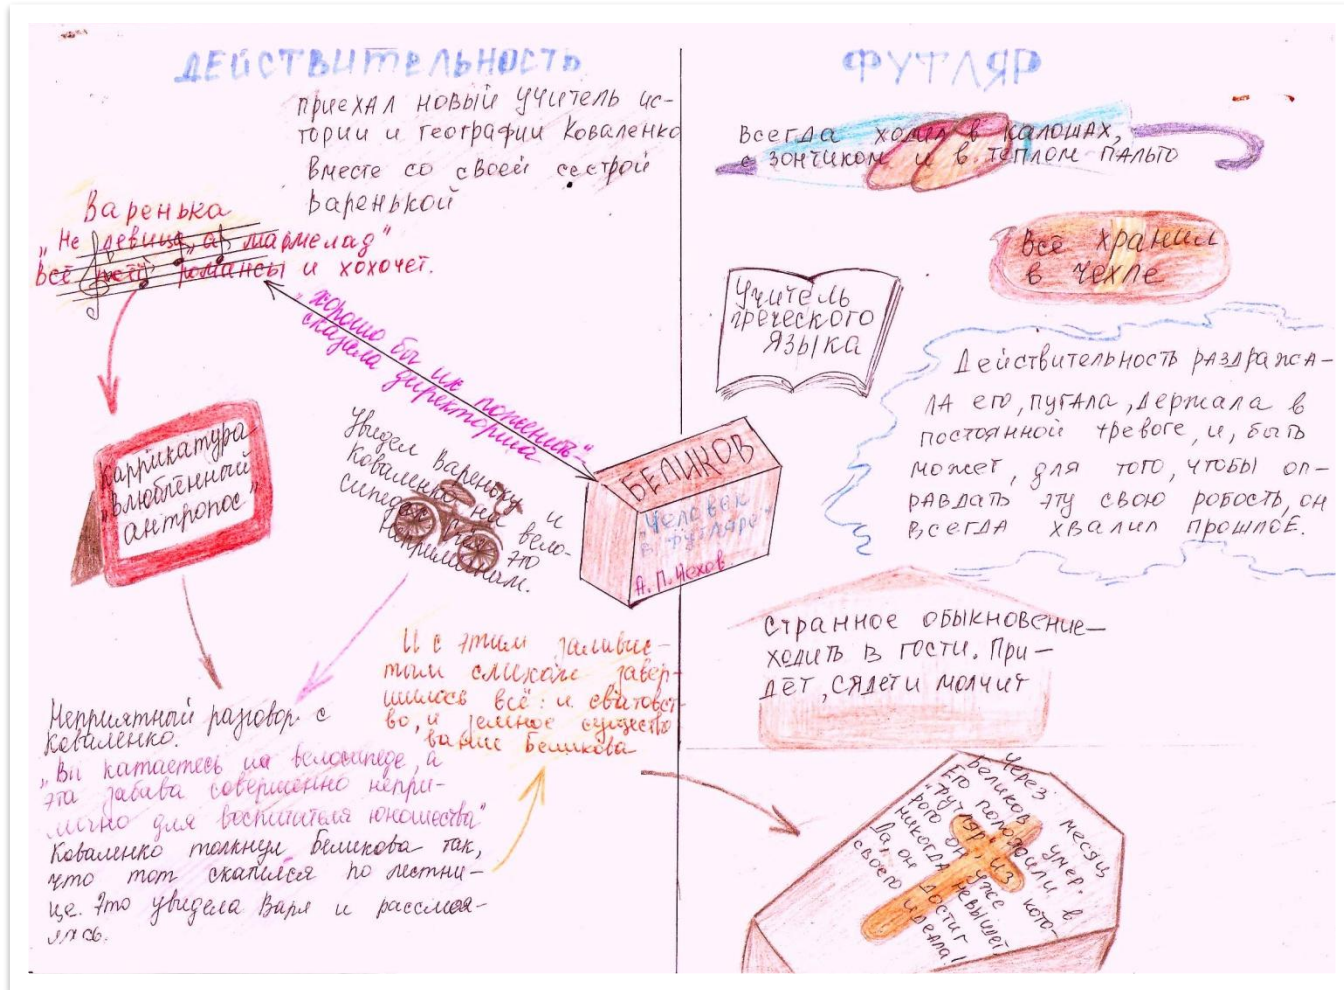 ДЕЙСТВИТЕЛЬНОСТЬ
приехал новый учитель ис-
тории и географии Коваленко
вместе со своей сестрой
Варенькой
Варенька
„Не девица, а мармелад"
Всё поёт романсы и хохочет.
„хорошо бы их поженить"-
сказала директорша
Каррикатура
„влюблённый
антропос"
Увидел Вареньку и
Коваленко на вело-
сипедах. Это
неприлично.
БЕЛИКОВ
„Человек
в футляре"
А. П. Чехов.
Неприятный разговор с
Коваленко.
„Вы катаетесь на велосипеде, а
эта забава совершенно непри-
лична для воспитателя юношества"
Коваленко толкнул Беликова так,
что тот скатился по лестни-
це. Это увидела Варя и рассмея-
лась.
И с этим заливис-
тым смехом завер-
шилось всё: и сватовст-
во, и земное существо
вание Беликова
ФУТЛЯР
Всегда ходил в калошах,
с зонтиком и в тёплом пальто
Всё хранил
в чехле
Учитель
греческого
языка
Действительность раздража-
ла его, пугала, держала в
постоянной тревоге, и, быть
может, для того, чтобы оп-
равдать эту свою робость, он
всегда хвалил прошлое.
Странное обыкновение-
ходить в гости. При-
дёт, сядет и молчит
Через месяц
Беликов умер.
Его положили в
"футляр", из кото-
рого он уже
никогда невыйдет
Да, он достиг
своего идеала!